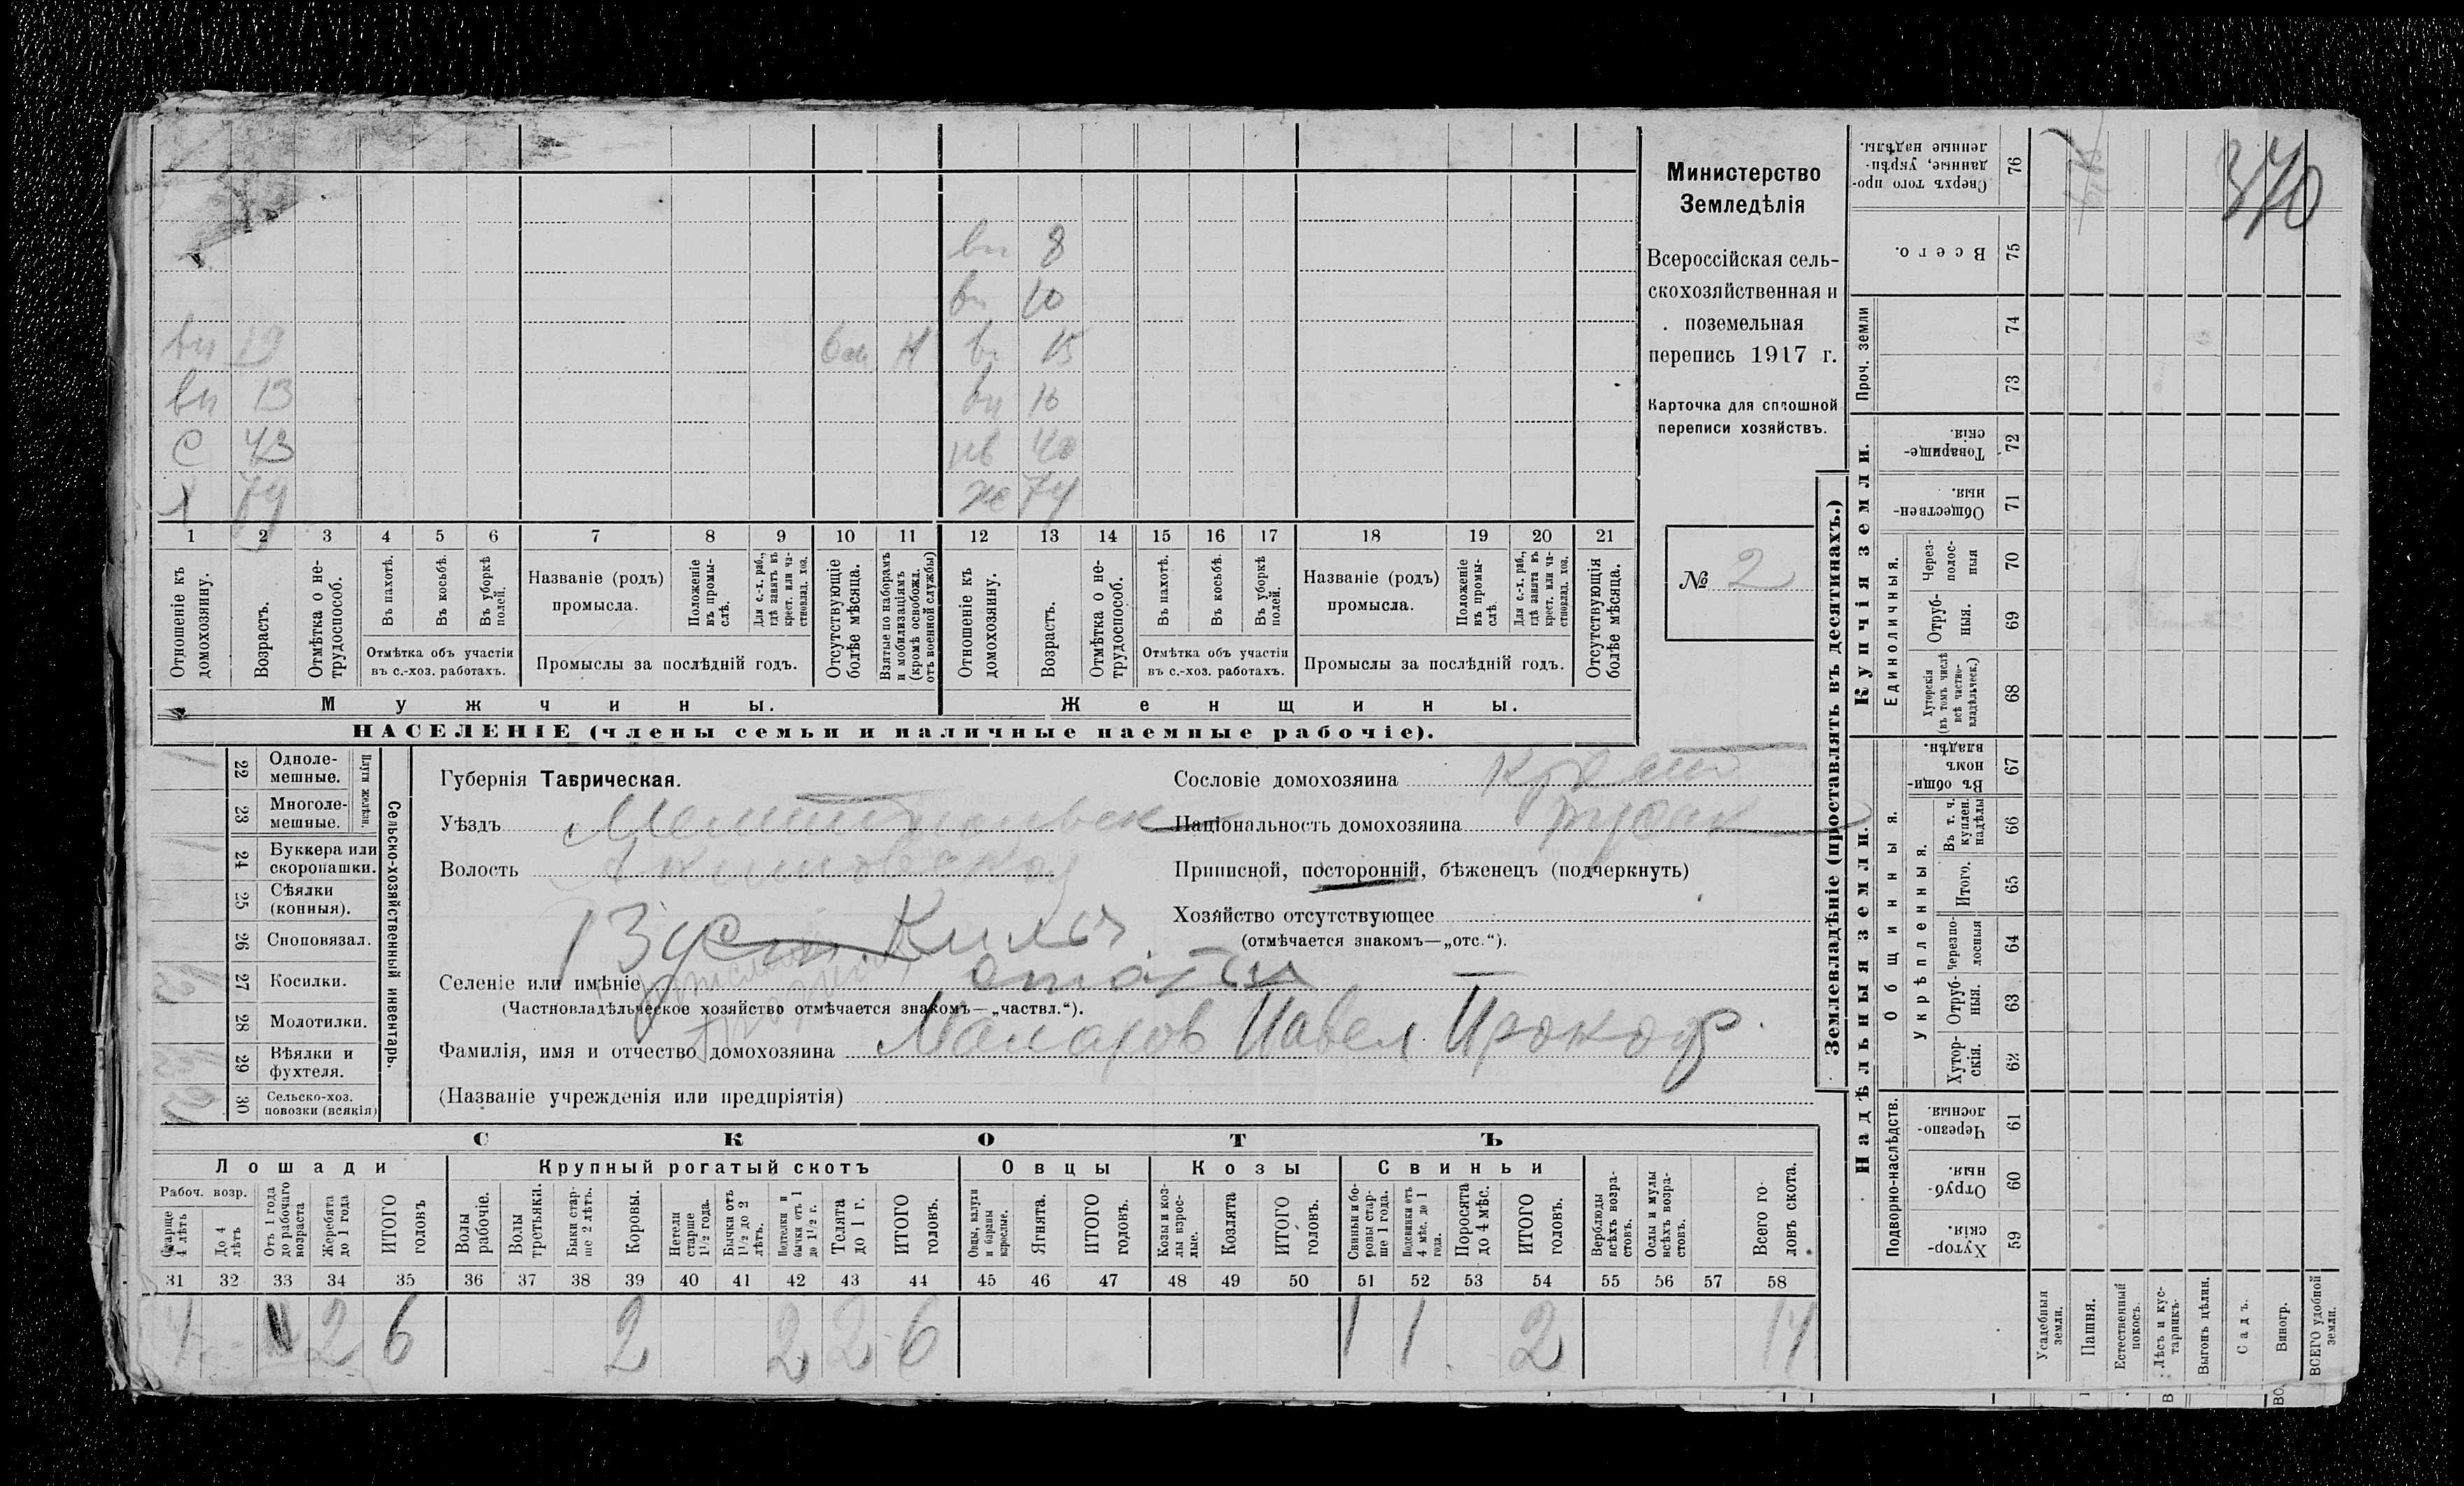 вн 8
вн 10
вн 19 Н вн 15
вн 13 вн 16
с 43 нв 40
х 79 ж 74
1 2 3 4 5 6 7 8 9 10 11 12 13 14 15 16 17 18 19 20 21
Отношеніе къ домохозяину.
Возрастъ.
Отмѣтка о не-трудоспособ.
Въ пахотѣ.
Въ косьбѣ.
Въ уборкѣ полей.
Отмѣтка объ участіи
въ с.-хоз. работахъ.
Названіе (родъ)
промысла.
Положеніе въ промы-слѣ.
Для с.-х. раб., гдѣ занятъ въ крест. или ча-стновлад. хоз.
Промыслы за послѣдній годъ.
Отсутствующіе болѣе мѣсяца.
Взятые по наборамъ и мобилизаціямъ (кромѣ освобожд. отъ военной службы)
Отношеніе къ домохозяину.
Возрастъ.
Отмѣтка о не-трудоспособ.
Въ пахотѣ.
Въ косьбѣ.
Въ уборкѣ полей.
Отмѣтка объ участіи
въ с.-хоз. работахъ.
Названіе (родъ)
промысла.
Положеніе въ промы-слѣ.
Для с.-х. раб., гдѣ занята въ крест. или ча-стновлад. хоз.
Промыслы за послѣдній годъ.
Отсутствующія болѣе мѣсяца.
Мужчины. Женщины.
НАСЕЛЕНІЕ (члены семьи и наличные наемные рабочіе).
Министерство
Земледѣлія
Всероссійская сель-
скохозяйственная и
поземельная
перепись 1917 г.
Карточка для сплошной
переписи хозяйствъ.
№ 2
22 Одноле-мешные.
23 Многоле-мешные.
Плуги желѣзн.
24 Буккера или скоропашки.
25 Сѣялки (конныя).
26 Сноповязал.
27 Косилки.
28 Молотилки.
29 Вѣялки и фухтеля.
30 Сельско-хоз. повозки (всякія)
Сельско-хозяйственный инвентарь.
Губернія Таврическая.
Уѣздъ Мелитопольск
Волость Акимовской
Селеніе или имѣніе
(Частновладѣльческое хозяйство отмѣчается знакомъ—„частвл.“).
Фамилія, имя и отчество домохозяина Маларов Павел Прокоф.
(Названіе учрежденія или предпріятія)
Сословіе домохозяина Крест
Національность домохозяина русак
Приписной, посторонній, бѣженецъ (подчеркнуть)
Хозяйство отсутствующее
(отмѣчается знакомъ—„отс.“).
СКОТЪ
Лошади Крупный рогатый скотъ Овцы Козы Свиньи
Рабоч. возр.
Старше 4 лѣтъ
До 4 лѣтъ
Отъ 1 года до рабочаго возраста
Жеребята до 1 года
ИТОГО головъ
Волы рабочіе.
Волы третьяки.
Быки стар-ше 2 лѣтъ.
Коровы.
Нетели старше 1½ года.
Бычки отъ 1½ до 2 лѣтъ.
Подтелки и бычки отъ 1 до 1½ г.
Телята до 1 г.
ИТОГО головъ.
Овцы, валухи и бараны взрослые.
Ягнята.
ИТОГО головъ.
Козы и коз-лы взрос-лые.
Козлята
ИТОГО головъ.
Свиньи и бо-ровы стар-ше 1 года.
Подсвинки отъ 4 мѣс. до 1 года.
Поросята до 4 мѣс.
ИТОГО головъ.
Верблюды всѣхъ возра-стовъ.
Ослы и мулы всѣхъ возра-стовъ.
Всего го-ловъ скота.
31 32 33 34 35 36 37 38 39 40 41 42 43 44 45 46 47 48 49 50 51 52 53 54 55 56 57 58
4 2 6 2 2 2 6 1 1 2 14
Землевладѣніе (проставлять въ десятинахъ.)
Надѣльныя земли. Купчія земли.
Подворно-наслѣдств.
Общинныя.
Укрѣпленныя.
Единоличныя.
Проч. земли
Сверхъ того про-данные, укрѣп-ленные надѣлы. 76
Всего. 75
74
73
Товарище-скія. 72
Обществен-ныя. 71
Через-полос-ныя 70
Отруб-ныя. 69
Хуторскія (въ томъ числѣ всѣ частно-владѣльческ.) 68
Въ общи-номъ владѣн. 67
Въ т. ч. куплен. надѣлы 66
Итого. 65
Черезпо-лосныя 64
Отруб-ныя. 63
Хутор-скія. 62
Черезпо-лосныя. 61
Отруб-ныя. 60
Хутор-скія. 59
Усадебныя земли.
Пашня.
Естественный покосъ.
Лѣсъ и кус-тарникъ.
Выгонъ цѣлин.
Садъ.
Виногр.
ВСЕГО удобной земли.
370